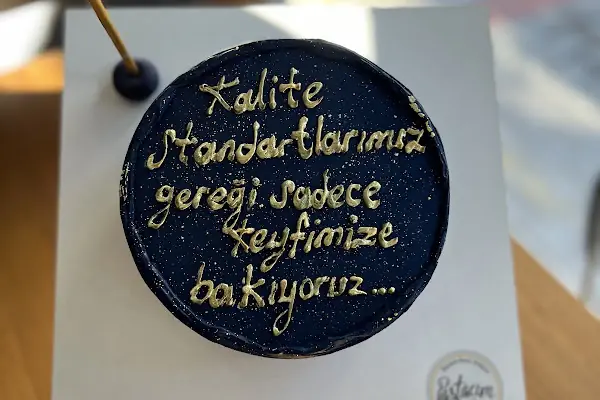 Kalite
standartlarımız
gereği sadece
keyfimize
bakıyoruz...